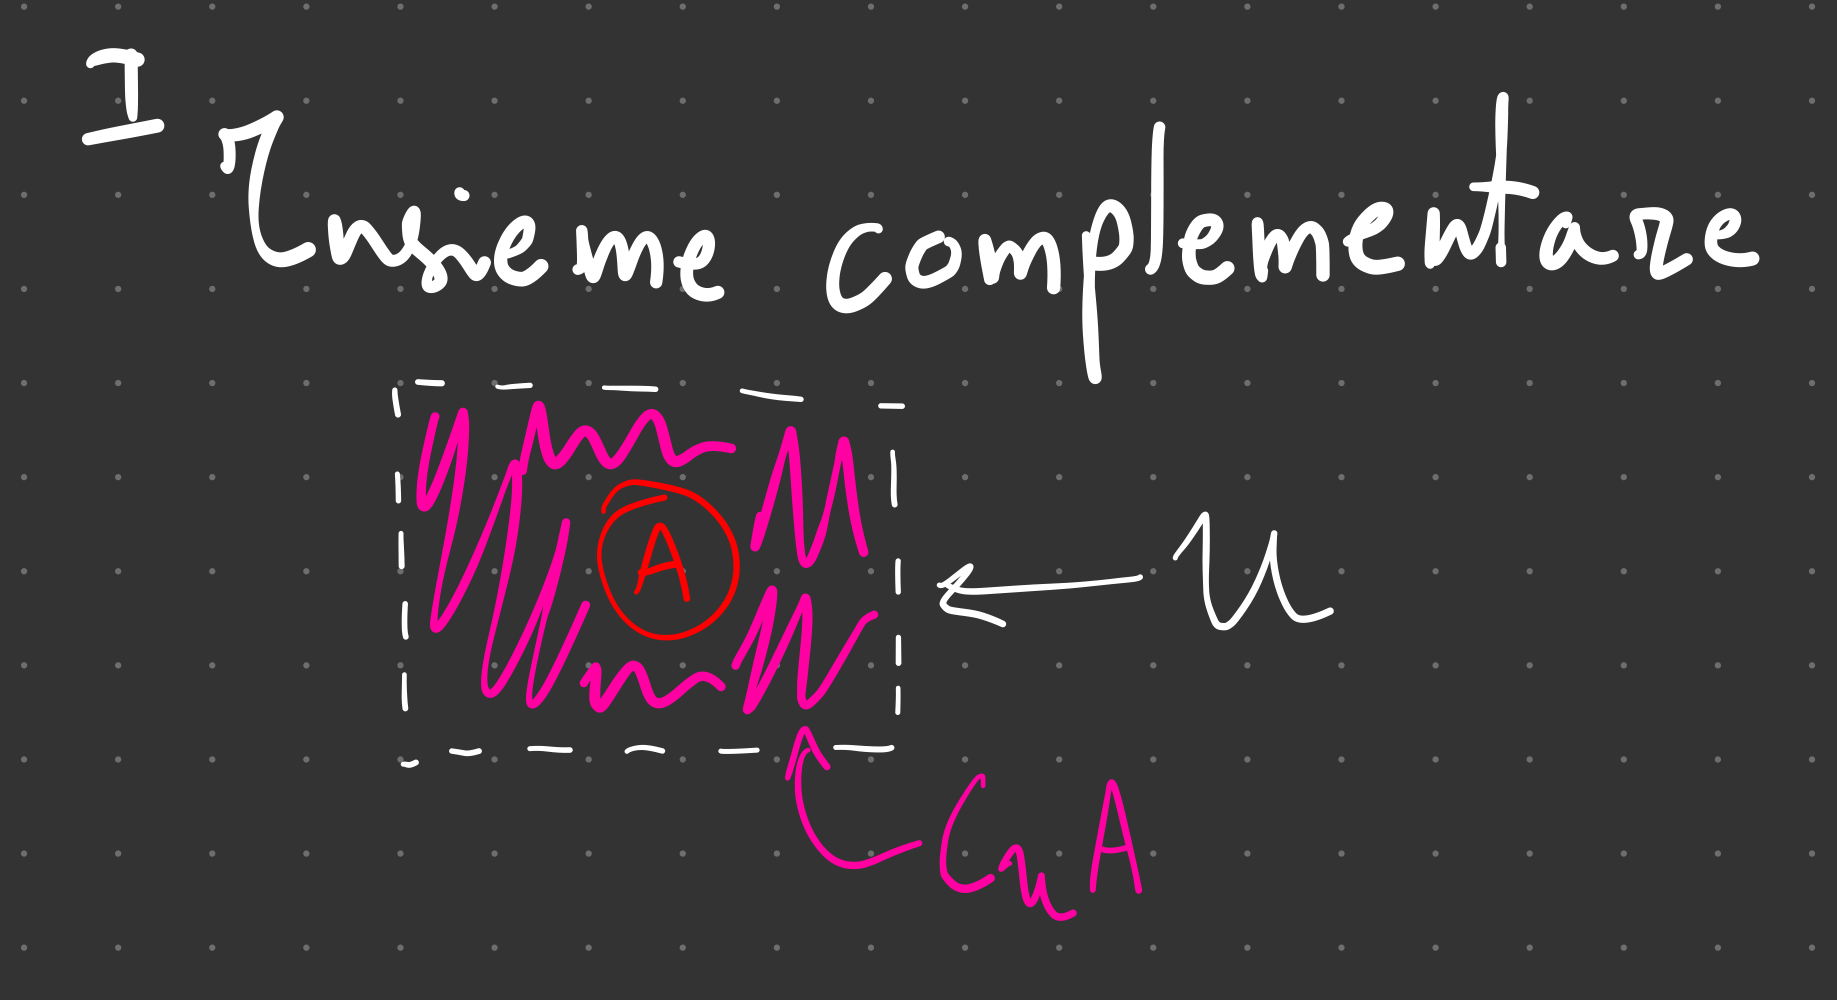 I
Insieme complementare
A
U
CuA